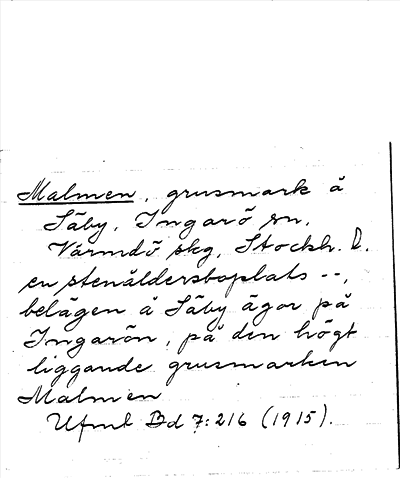 Malmen, grusmark å
Säby, Ingarö sn,
Värmdö skg, Stockh. D.
en stenåldersboplats --,
belägen å Säby ägor på
Ingarön, på den högt
liggande grusmarken
Malmen
Ufmt Bd 7:216 (1915).